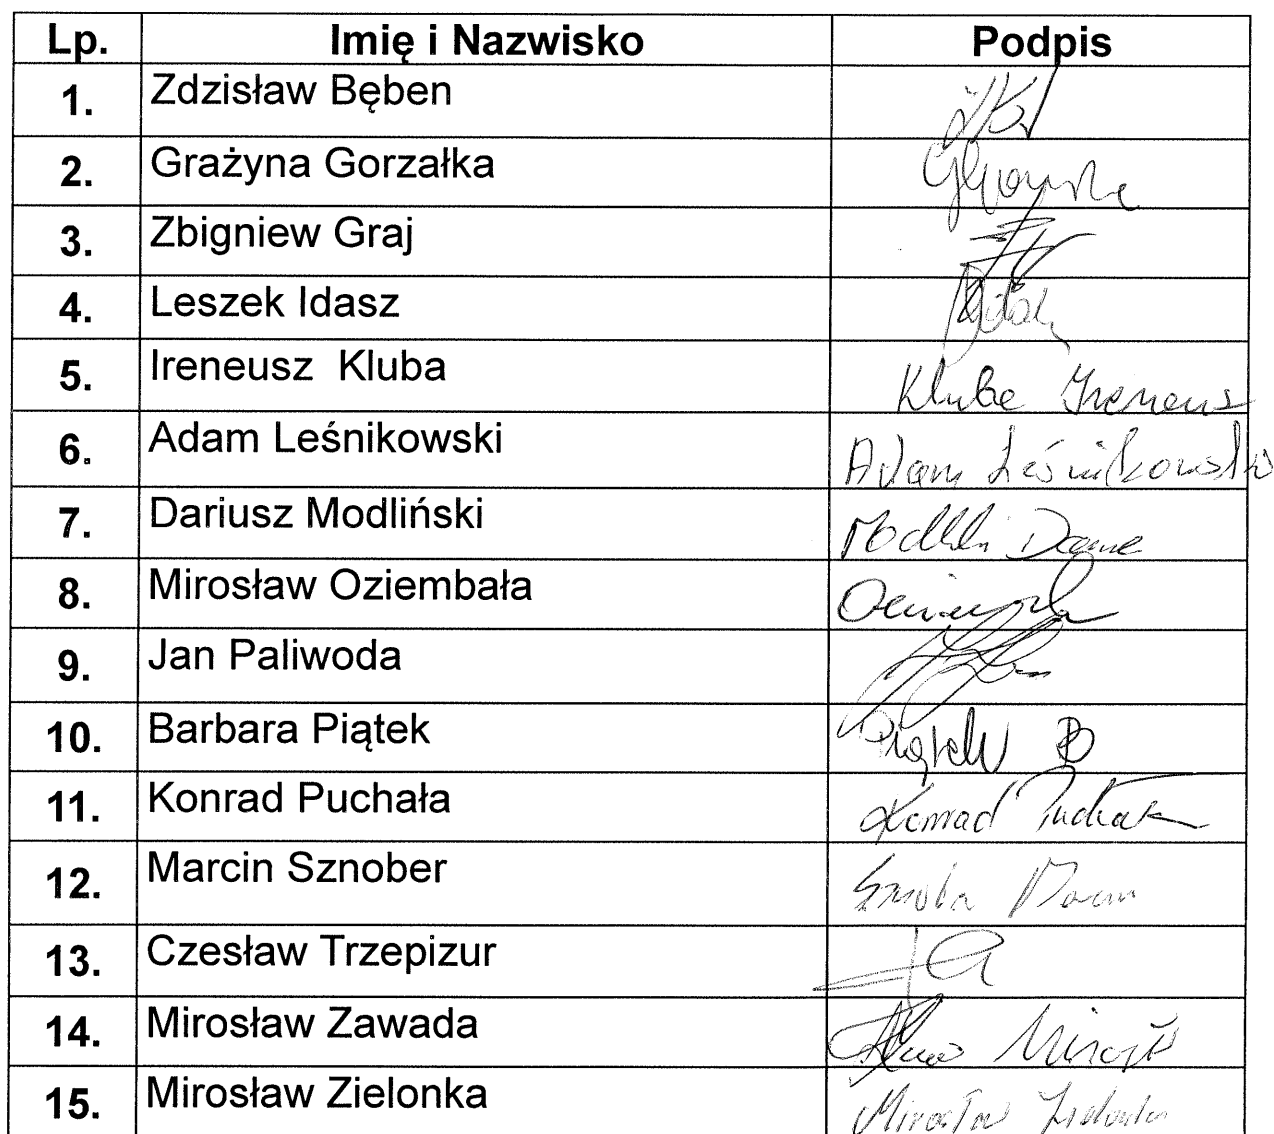 Lp. Imię i Nazwisko Podpis
1. Zdzisław Bęben
2. Grażyna Gorzałka
3. Zbigniew Graj
4. Leszek Idasz
5. Ireneusz Kluba Kluba Ireneusz
6. Adam Leśnikowski Adam Leśnikowski
7. Dariusz Modliński
8. Mirosław Oziembała
9. Jan Paliwoda
10. Barbara Piątek Piątek B
11. Konrad Puchała Konrad Puchała
12. Marcin Sznober
13. Czesław Trzepizur
14. Mirosław Zawada
15. Mirosław Zielonka Mirosław Zielonka